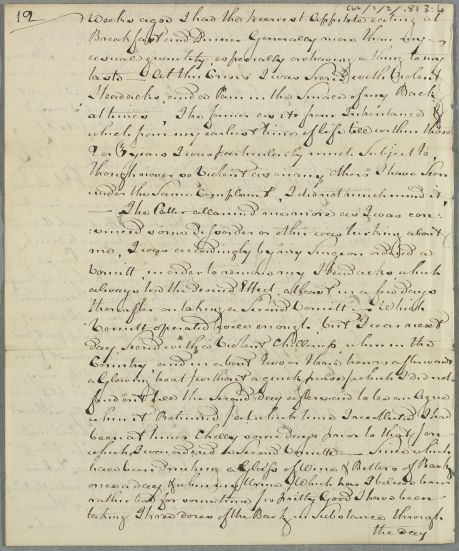 12
CUL/1/2/1813:4
Weeks agoe I had the keenest Appetite eating at
Breakfast and Dinner Generally more than my
usual quantity, especially on having a thing to my
taste — At this Crisis I was Seized with Violent
Headachs, and a Pain in the Small of my Back
at times, The former as its from Inheritance &
which from my earliest times of life till within these
2 or 3 years I was particularly much Subject to,
though never so Violent as in any others I have Seen
under the Same Complaint, I did not much mind it
— The Latter allarmed me more as I was con:
:vinced some disorder or other was lurking about
me, I was accordingly by my Surgeon ordered a
Vomitt, in order to remove my Headachs which
always had the desired Effect, at least in a few days
thereafter on taking a Second Vomitt — Which
Vomitt operated well enough, but I was next
day Seized with a Violent Chillness, when in the
Country, and in about two or three hours afterwards
a Glowing heat (without a quick pulse) which I did not
find out till the Second day afterward to be an Ague
when it Returned, at which time I recollected I had
been at times Chilley some days prior to that, on
which I was ordered the Second Vomitt — Since which
have been drinking a Glass of Wine & Bitters of Bark
once a day, & when my Urine (Which has I believe been
rather bad for sometime) is pritty Good I have been
taking three doses of the Bark in Substance through
the day